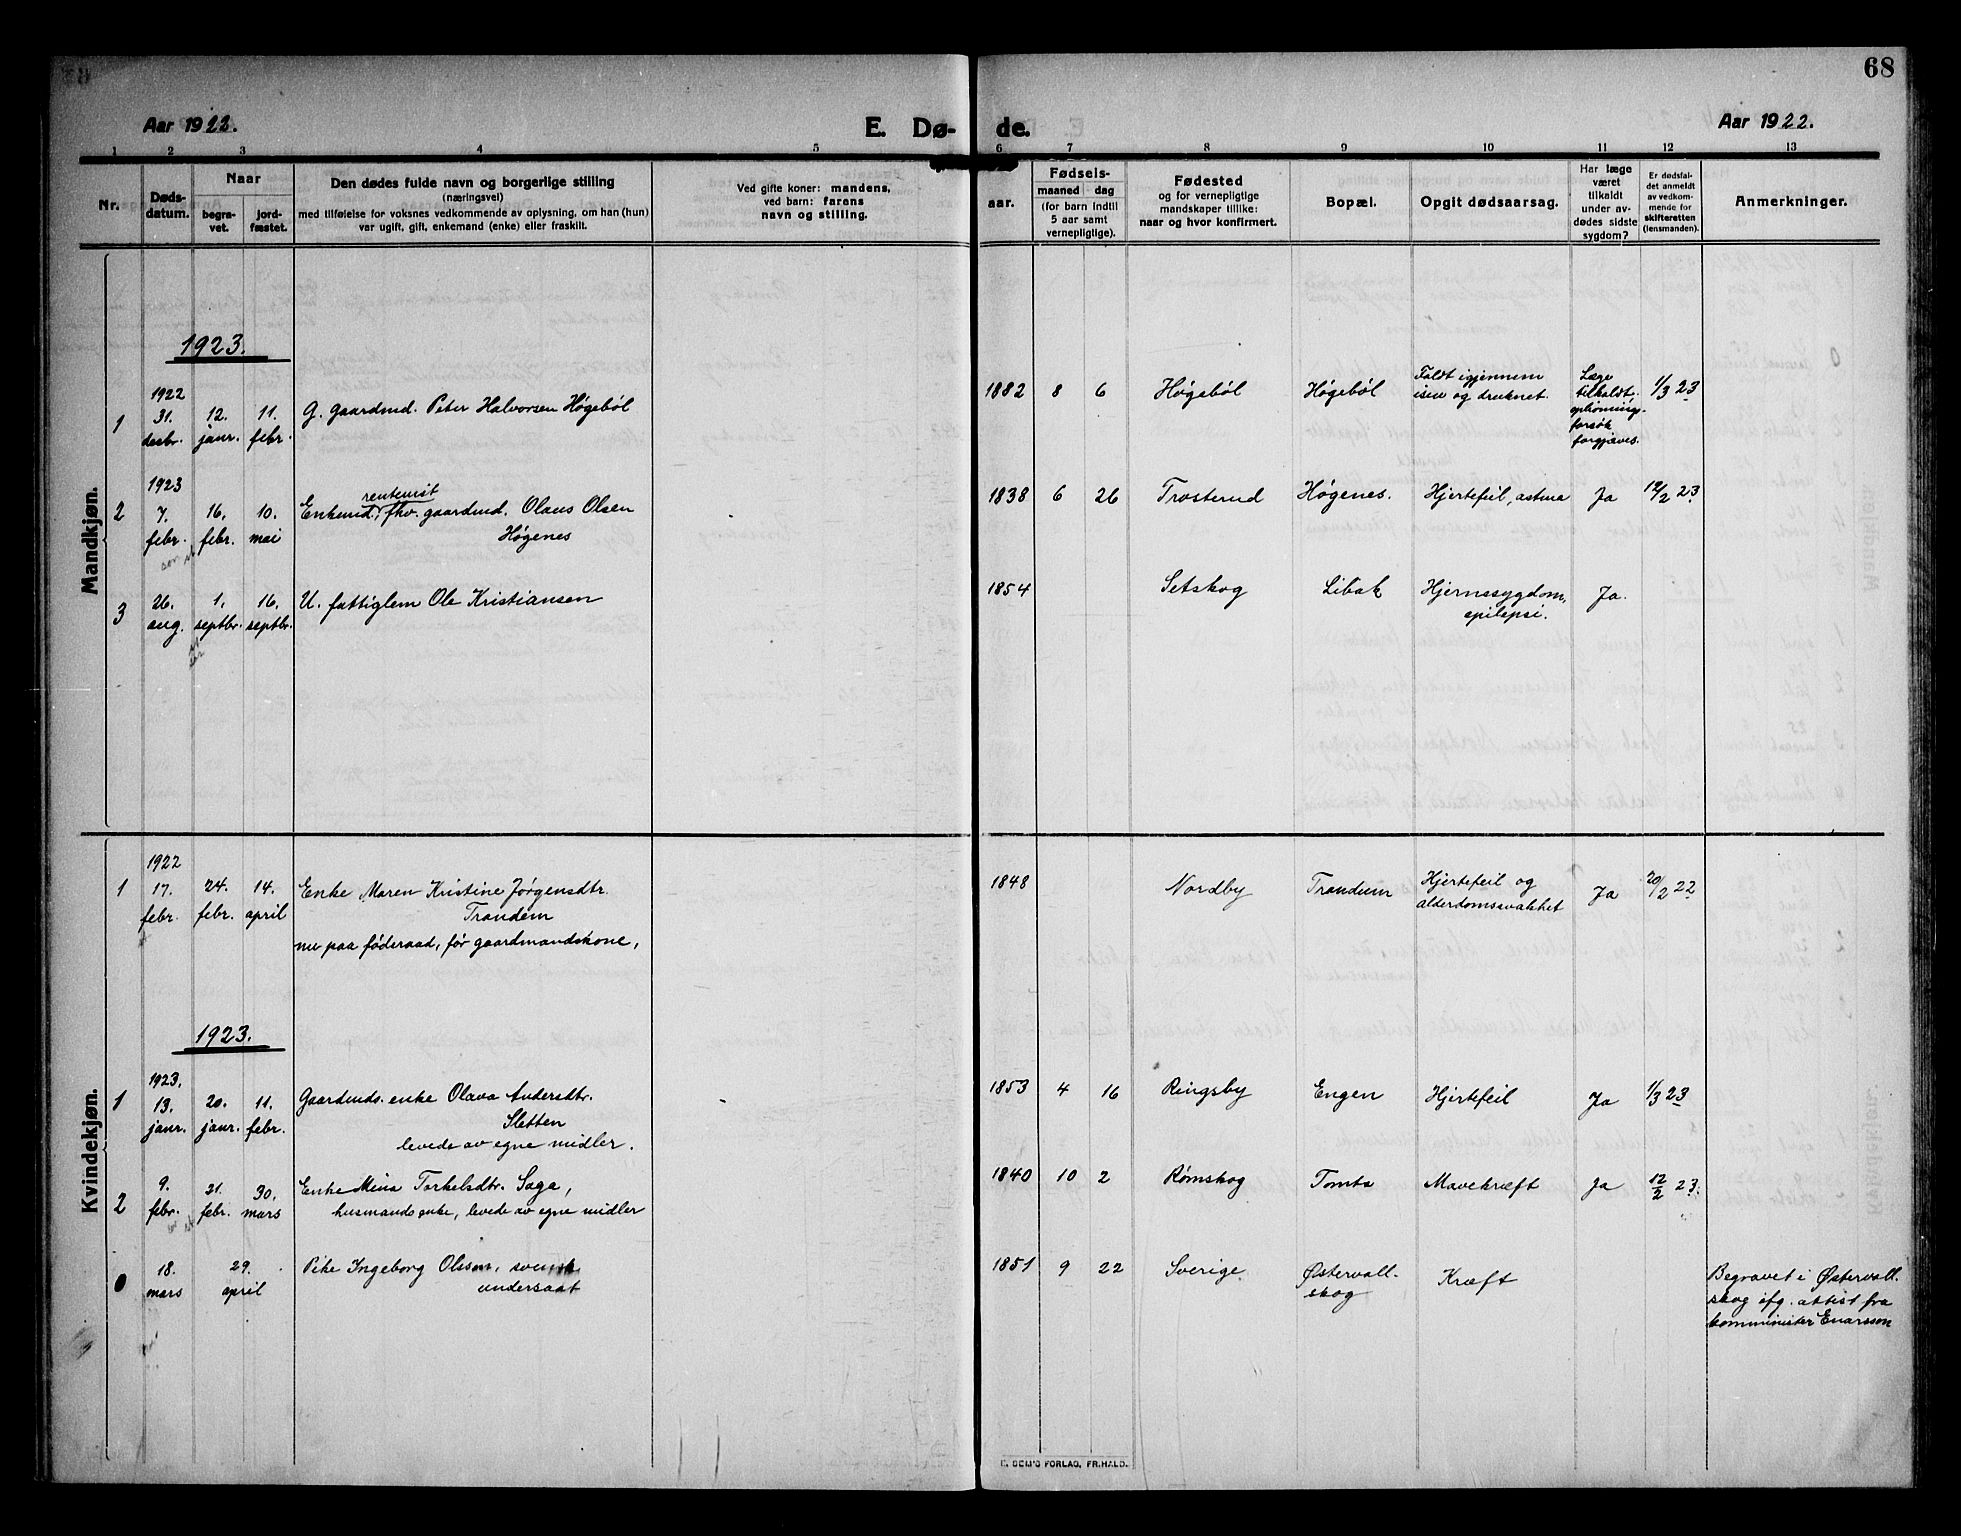 68
Aar 1922.
E. Dø-
de.
Aar 1922.
1 2 3 4 5 6 7 8 9 10 11 12 13
Nr.
Døds-
datum.
Naar
begra-
vet.
jord-
fæstet.
Den dødes fulde navn og borgerlige stilling
(næringsvei)
med tilføielse for voksnes vedkommende av oplysning, om han (hun)
var ugift, gift, enkemand (enke) eller fraskilt.
Ved gifte koner: mandens,
ved barn: farens
navn og stilling.
Fødsels-
aar.
maaned
dag
(for barn indtil
5 aar samt
vernepligtige).
Fødested
og for vernepligtige
mandskaper tillike:
naar og hvor konfirmert.
Bopæl.
Opgit dødsaarsag.
Har læge
været
tilkaldt
under av-
dødes sidste
sygdom?
Er dødsfal-
det anmeldt
av vedkom-
mende for
skifteretten
(lensmanden).
Anmerkninger.
Mandkjøn.
1923.
1922
1 31. desbr. 12. janr. 11. febr. G. gaardmd. Peter Halvorsen Høgebøl 1882 8 6 Høgebøl Høgebøl Faldt igjennem
isen og druknet.
Læge
tilkaldt.
oplivnings-
forsøk
forgjæves.
1/3 23
1923
2 7. febr. 16. febr. 10. mai Enkemd. rentenist fhv. gaardmd. Olaus Olsen
Høgenes
1838 6 26 Trosterud Høgenes. Hjertefeil, astma Ja 12/2 23
3 26. aug. 1. septbr. 16. septbr. U. fattiglem Ole Kristiansen 1854 Setskog Libak Hjernesygdom,
epilepsi.
Ja.
Kvindekjøn.
1922
1 17. febr. 24. febr. 14. april Enke Maren Kristine Jørgensdtr.
Trandem
nu paa føderaad, før gaardmandskone,
1848 Nordby Trandum Hjertefeil og
alderdomssvakhet
Ja 20/2 22
1923.
1923.
1 13. janr. 20. janr. 11. febr. Gaardmds. enke Olava Andersdtr.
Sletten
levede av egne midler.
1853 4 16 Ringsby Engen Hjertefeil Ja 1/3 23
2 9. febr. 21. febr. 30. mars Enke Mina Torkelsdtr. Saga,
husmands enke, levede av egne midler
1840 10 2 Rømskog Tomta Mavekræft Ja 12/2 23.
0 18. mars 29. april Pike Ingeborg Olsson, svensk
undersaat
1851 9 22 Sverige Østervall-
skog
Kræft
Begravet i Østervall-
skog ifg. attist fra
komminister Enarsson
E. SEM'S FORLAG, FR.HALD.